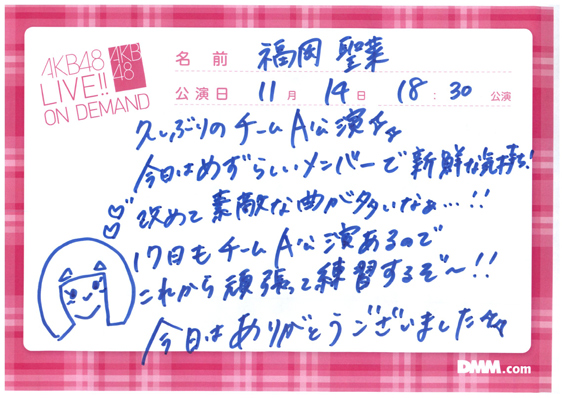 AKB48
LIVE!!
ON DEMAND
AKB
48
名前 福岡 聖菜
公演日 11月 14日 18:30 公演
久しぶりのチームA公演☆☆
今日はめずらしいメンバーで新鮮な気持ち!
改めて素敵な曲が多いなぁ…!!
17日もチームA公演あるので
これから頑張って練習するぞ〜!!
今日はありがとうございました☆☆
DMM.com